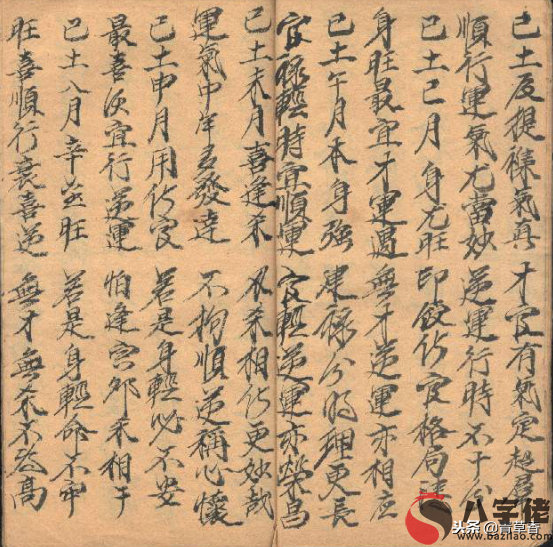 己土辰提祿氣真 才官有氣定超群
順行運氣尤當妙 逆運行時不十分
己土巳月身尤旺 印伤官格局
身旺最宜才運過 無才逆運亦相应
己土午月本身强 建祿分明理更長
官祿輕時宜順運 官輕逆運亦榮昌
己土未月喜逢杀 杀相伤更妙哉
運氣中年方發達 不拘順逆稱心懷
己土申月用伤官 若是身輕必不安
最喜宜行逆運 怕逢寅卯杀相干
己土八月辛金旺 若是身輕命不牢
旺喜順行衰喜逆 無才無杀不為高
八字佬
www.bazilao.com
头条 @青草香